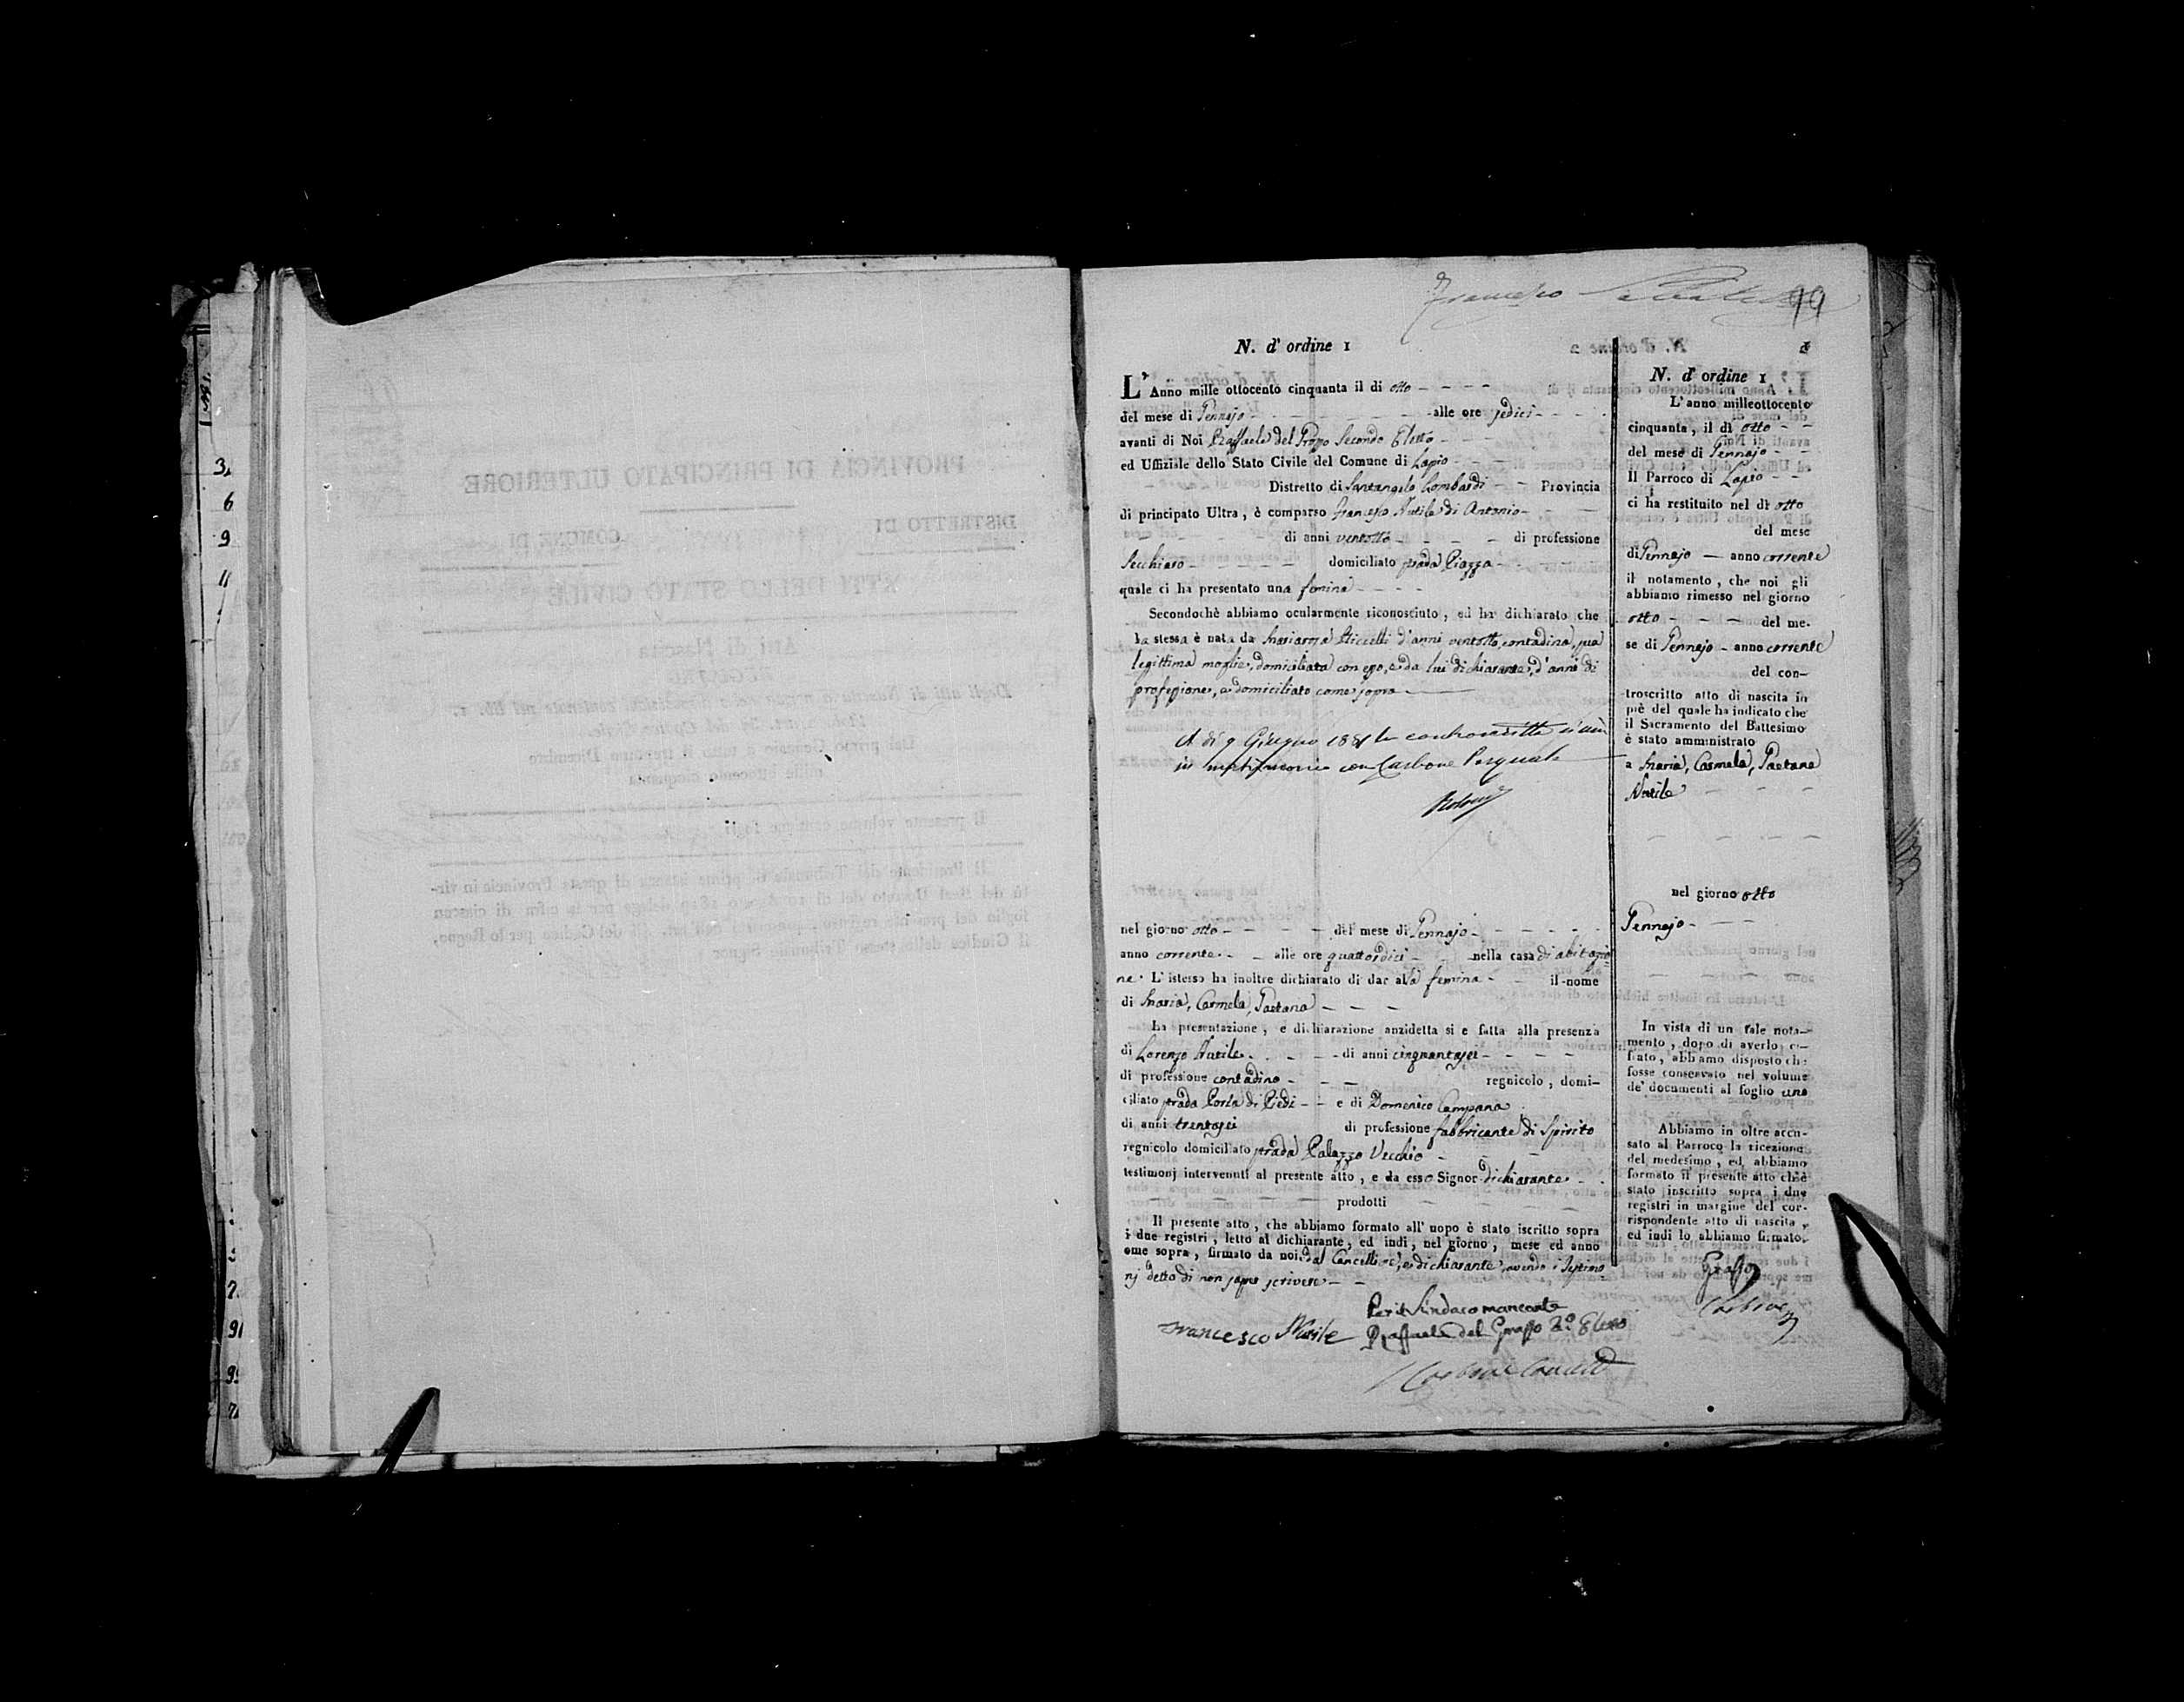 Francesco
99
N. d' ordine 1
L' Anno mille ottocento cinquanta il di otto
del mese di Gennajo alle ore sedici
avanti di Noi Raffaele del Grosso Secondo Eletto
ed Uffiziale dello Stato Civile del Comune di Lapio
Distretto di Santangelo Lombardi Provincia
di principato Ultra, è comparso Francesco Nutile di Antonio
di anni ventotto di professione
domiciliato strada Piazza
quale ci ha presentato una femina
Secondochè abbiamo ocularmente riconosciuto, ed ha dichiarato che
la stessa è nata da Mariarosa d'anni ventotto, contadina, sua
legittima moglie, domiciliata con esso, e da lui dichiarante, d'anni di
professione, e domiciliato come sopra
A dì 9 Giugno la controscritta si unì
in matrimonio con Carbone Pasquale
nel giorno otto del mese di Gennajo
anno corrente alle ore quattordici nella casa di abitazio=
ne. L' istesso ha inoltre dichiarato di dar alla femina il nome
di Maria, Carmela, Gaetana
La presentazione, e dichiarazione anzidetta si e fatta alla presenza
di Lorenzo Nutile di anni cinquantasei
di professione contadino regnicolo, domi-
ciliato strada Porta di Piedi e di Domenico Campana
di anni trentasei di professione fabbricante di Spirito
regnicolo domiciliato strada Palazzo Vecchio
testimonj intervenuti al presente atto, e da esso Signor dichiarante
prodotti
Il presente atto, che abbiamo formato all' uopo è stato iscritto sopra
i due registri, letto al dichiarante, ed indi, nel giorno, mese ed anno
ome sopra, firmato da noi, dal Cancelliere, e dichiarante, avendo i Testimo=
nj detto di non saper scrivere
Per il Sindaco mancante
Francesco Nutile Raffaele del Grosso 2.º Eletto
Carbone
N. d' ordine 1
L' anno milleottocento
cinquanta, il dì otto
del mese di Gennajo
Il Parroco di Lapio
ci ha restituito nel dì otto
del mese
di Gennajo anno corrente
il notamento, che noi gli
abbiamo rimesso nel giorno
otto del me-
se di Gennajo anno corrente
del con-
troscritto atto di nascita in
piè del quale ha indicato che
il Sacramento del Battesimo
è stato amministrato
a Maria, Carmela, Gaetana
Nutile
nel giorno otto
Gennajo
In vista di un tale nota-
mento, dopo di averlo ci-
frato, abbiamo disposto che
fosse conservato nel volume
de' documenti al foglio uno
Abbiamo in oltre accu-
sato al Parroco la ricezione
del medesimo, ed abbiamo
formato il presente atto ch'è
stato inscritto sopra i due
registri in margine del cor-
rispondente atto di nascita,
ed indi lo abbiamo firmato.
Grosso
Carbone